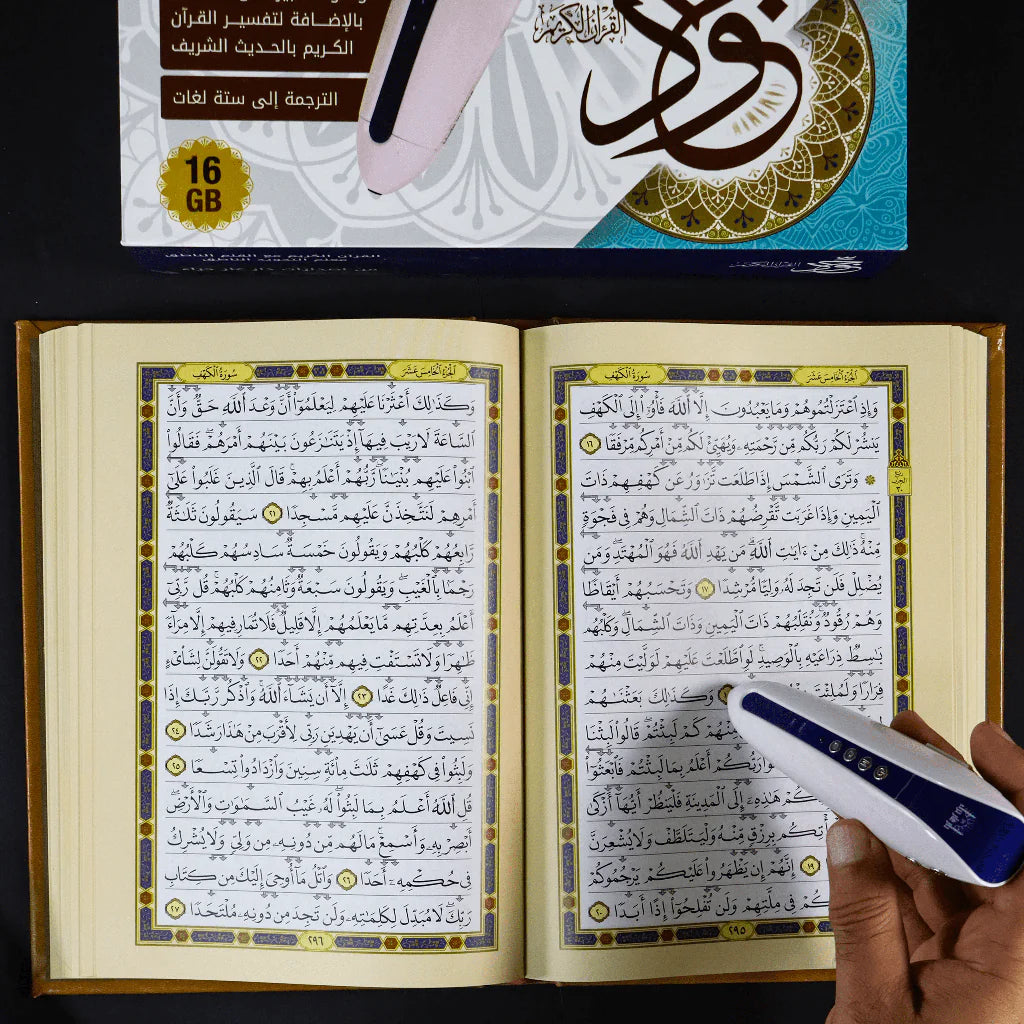 بالإضافة لتفسير القرآن
الكريم بالحديث الشريف
الترجمة إلى ستة لغات
16
GB
القرآن الكريم
نور
القرآن الكريم مع القلم الناطق
الجزء الخامس عشر
سورة الكهف
وَإِذِ ٱعْتَزَلْتُمُوهُمْ وَمَا يَعْبُدُونَ إِلَّا ٱللَّهَ فَأْوُۥٓا۟ إِلَى ٱلْكَهْفِ
يَنشُرْ لَكُمْ رَبُّكُم مِّن رَّحْمَتِهِۦ وَيُهَيِّئْ لَكُم مِّنْ أَمْرِكُم مِّرْفَقًا ١٦
وَتَرَى ٱلشَّمْسَ إِذَا طَلَعَت تَّزَٰوَرُ عَن كَهْفِهِمْ ذَاتَ
ٱلْيَمِينِ وَإِذَا غَرَبَت تَّقْرِضُهُمْ ذَاتَ ٱلشِّمَالِ وَهُمْ فِى فَجْوَةٍ
مِّنْهُ ذَٰلِكَ مِنْ ءَايَٰتِ ٱللَّهِ مَن يَهْدِ ٱللَّهُ فَهُوَ ٱلْمُهْتَدِ وَمَن
يُضْلِلْ فَلَن تَجِدَ لَهُۥ وَلِيًّا مُّرْشِدًا ١٧ وَتَحْسَبُهُمْ أَيْقَاظًا
وَهُمْ رُقُودٌ وَنُقَلِّبُهُمْ ذَاتَ ٱلْيَمِينِ وَذَاتَ ٱلشِّمَالِ وَكَلْبُهُم
بَٰسِطٌ ذِرَاعَيْهِ بِٱلْوَصِيدِ لَوِ ٱطَّلَعْتَ عَلَيْهِمْ لَوَلَّيْتَ مِنْهُمْ
فِرَارًا وَلَمُلِئْتَ وَكَذَٰلِكَ بَعَثْنَٰهُمْ
مِّنْهُمْ كَمْ لَبِثْتُمْ قَالُوا۟ لَبِثْنَا
رَبُّكُمْ أَعْلَمُ بِمَا لَبِثْتُمْ فَٱبْعَثُوٓا۟
هَٰذِهِۦٓ إِلَى ٱلْمَدِينَةِ فَلْيَنظُرْ أَيُّهَآ أَزْكَىٰ
بِرِزْقٍ مِّنْهُ وَلْيَتَلَطَّفْ وَلَا يُشْعِرَنَّ
إِنَّهُمْ إِن يَظْهَرُوا۟ عَلَيْكُمْ يَرْجُمُوكُمْ ١٩
فِى مِلَّتِهِمْ وَلَن تُفْلِحُوٓا۟ إِذًا أَبَدًا ٢٠
٢٩٥
الجزء الخامس عشر
سورة الكهف
وَكَذَٰلِكَ أَعْثَرْنَا عَلَيْهِمْ لِيَعْلَمُوٓا۟ أَنَّ وَعْدَ ٱللَّهِ حَقٌّ وَأَنَّ
ٱلسَّاعَةَ لَا رَيْبَ فِيهَآ إِذْ يَتَنَٰزَعُونَ بَيْنَهُمْ أَمْرَهُمْ فَقَالُوا۟
ٱبْنُوا۟ عَلَيْهِم بُنْيَٰنًا رَّبُّهُمْ أَعْلَمُ بِهِمْ قَالَ ٱلَّذِينَ غَلَبُوا۟ عَلَىٰٓ
أَمْرِهِمْ لَنَتَّخِذَنَّ عَلَيْهِم مَّسْجِدًا ٢١ سَيَقُولُونَ ثَلَٰثَةٌ
رَّابِعُهُمْ كَلْبُهُمْ وَيَقُولُونَ خَمْسَةٌ سَادِسُهُمْ كَلْبُهُمْ
رَجْمًۢا بِٱلْغَيْبِ وَيَقُولُونَ سَبْعَةٌ وَثَامِنُهُمْ كَلْبُهُمْ قُل رَّبِّىٓ
أَعْلَمُ بِعِدَّتِهِم مَّا يَعْلَمُهُمْ إِلَّا قَلِيلٌ فَلَا تُمَارِ فِيهِمْ إِلَّا مِرَآءً
ظَٰهِرًا وَلَا تَسْتَفْتِ فِيهِم مِّنْهُمْ أَحَدًا ٢٢ وَلَا تَقُولَنَّ لِشَا۟ىْءٍ
إِنِّى فَاعِلٌ ذَٰلِكَ غَدًا ٢٣ إِلَّآ أَن يَشَآءَ ٱللَّهُ وَٱذْكُر رَّبَّكَ إِذَا
نَسِيتَ وَقُلْ عَسَىٰٓ أَن يَهْدِيَنِ رَبِّى لِأَقْرَبَ مِنْ هَٰذَا رَشَدًا ٢٤
وَلَبِثُوا۟ فِى كَهْفِهِمْ ثَلَٰثَ مِا۟ئَةٍ سِنِينَ وَٱزْدَادُوا۟ تِسْعًا ٢٥
قُلِ ٱللَّهُ أَعْلَمُ بِمَا لَبِثُوا۟ لَهُۥ غَيْبُ ٱلسَّمَٰوَٰتِ وَٱلْأَرْضِ
أَبْصِرْ بِهِۦ وَأَسْمِعْ مَا لَهُم مِّن دُونِهِۦ مِن وَلِىٍّ وَلَا يُشْرِكُ
فِى حُكْمِهِۦٓ أَحَدًا ٢٦ وَٱتْلُ مَآ أُوحِىَ إِلَيْكَ مِن كِتَابِ
رَبِّكَ لَا مُبَدِّلَ لِكَلِمَٰتِهِۦ وَلَن تَجِدَ مِن دُونِهِۦ مُلْتَحَدًا ٢٧
٢٩٦